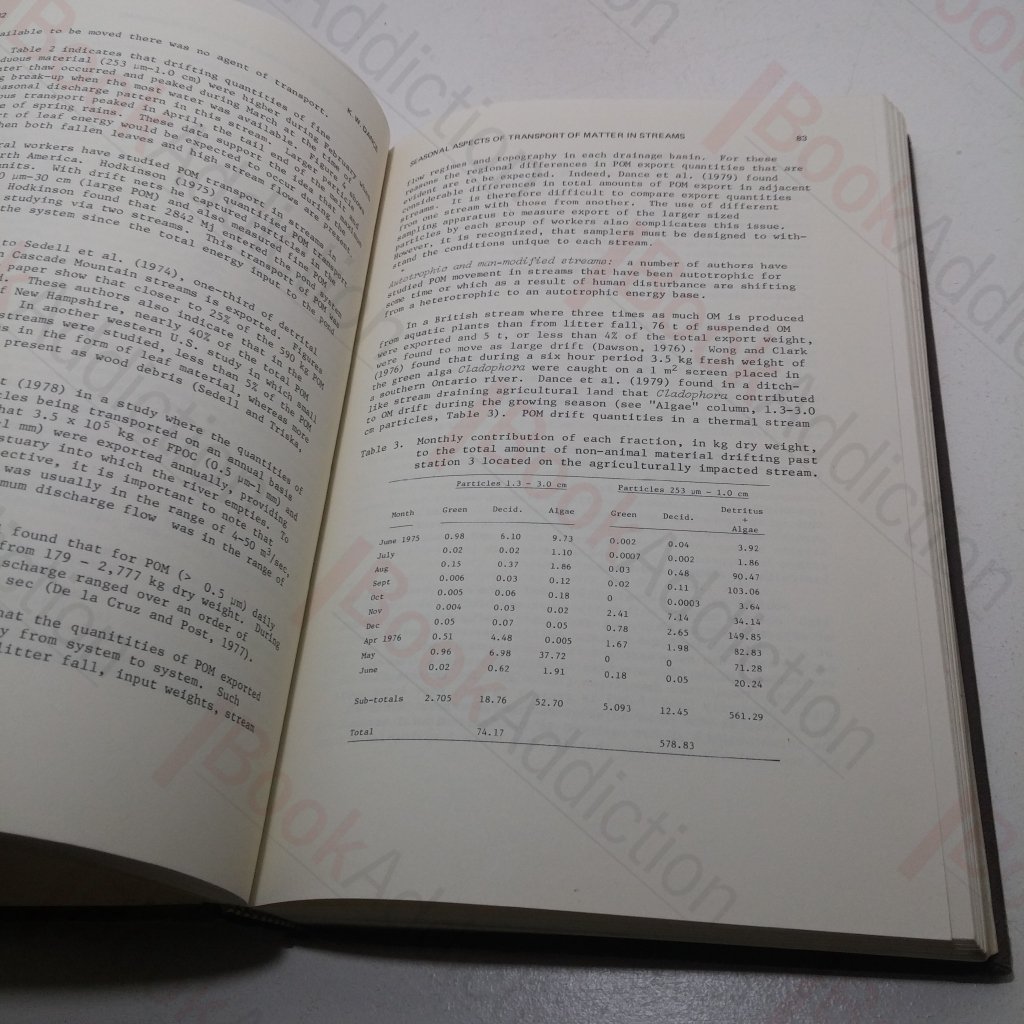 82
K. W. DANCE
ailable to be moved there was no agent of transport.
Table 2 indicates that drifting quantities of fine
duous material (253 µm-1.0 cm) were highest during February when
ter thaw occurred and peaked during March at the time
g break-up when the most water was available. Figure 4 shows
easonal discharge pattern in this stream. The
ous transport peaked in April, the tail end of the period
e of spring rains. These data support the
rt of leaf energy would be expected to occur during the
hen both fallen leaves and high stream flows are present.
ral workers have studied POM transport in streams in
rth America. Hodkinson (1975)
units. With drift nets he captured particles in the
0 µm-30 cm (large POM) and also measured fine POM
Hodkinson found that 2842 Mj entered the pond system
studying via two streams. This transport of POM was
the system since the total energy input to the pond
to Sedell et al. (1974), one-third of detrital
n Cascade Mountain streams is exported. Figures
paper show that closer to 25% of the 590 kg POM
d. These authors also indicate that in the
f New Hampshire, nearly 40% of the total POM
In another western U.S. study in which small
streams were studied, less than 5% of the POM
is in the form of leaf material, whereas more
present as wood debris (Sedell and Triska,
t (1978) in a study where the quantities of
cles being transported on an annual basis
hat 3.5 x 10⁵ kg of FPOC (0.5 µm-1 mm) and
-1 mm) were exported annually, providing
stuary into which the river empties. To
ective, it is important to note that
was usually in the range of 4-50 m³/sec,
mum discharge flow was in the range of
found that for POM (> 0.5 µm) daily
from 179 - 2,777 kg dry weight. During
ischarge ranged over an order of
sec (De la Cruz and Post, 1977).
hat the quantitities of POM exported
y from system to system. Such
litter fall, input weights, stream
SEASONAL ASPECTS OF TRANSPORT OF MATTER IN STREAMS 83
flow regimes and topography in each drainage basin. For these
reasons the regional differences in POM export quantities that are
evident are to be expected. Indeed, Dance et al. (1979) found
considerable differences in total amounts of POM export in adjacent
streams. It is therefore difficult to compare export quantities
from one stream with those from another. The use of different
sampling apparatus to measure export of the larger sized
particles by each group of workers also complicates this issue.
However, it is recognized, that samplers must be designed to with-
stand the conditions unique to each stream.
Autotrophic and man-modified streams: a number of authors have
studied POM movement in streams that have been autotrophic for
some time or which as a result of human disturbance are shifting
from a heterotrophic to an autotrophic energy base.
In a British stream where three times as much OM is produced
from aquatic plants than from litter fall, 76 t of suspended OM
were exported and 5 t, or less than 4% of the total export weight,
were found to move as large drift (Dawson, 1976). Wong and Clark
(1976) found that during a six hour period 3.5 kg fresh weight of
the green alga Cladophora were caught on a 1 m² screen placed in
a southern Ontario river. Dance et al. (1979) found in a ditch-
like stream draining agricultural land that Cladophora contributed
to OM drift during the growing season (see "Algae" column, 1.3-3.0
cm particles, Table 3). POM drift quantities in a thermal stream
Table 3. Monthly contribution of each fraction, in kg dry weight,
to the total amount of non-animal material drifting past
station 3 located on the agriculturally impacted stream.
Particles 1.3 - 3.0 cm Particles 253 µm - 1.0 cm
Month Green Decid. Algae Green Decid. Detritus + Algae
June 1975 0.98 6.10 9.73 0.002 0.04 3.92
July 0.02 0.02 1.10 0.0007 0.002 1.86
Aug 0.15 0.37 1.86 0.03 0.48 90.47
Sept 0.006 0.03 0.12 0.02 0.11 103.06
Oct 0.005 0.06 0.18 0 0.0003 3.64
Nov 0.004 0.03 0.02 2.41 7.14 34.14
Dec 0.05 0.07 0.05 0.78 2.65 149.85
Apr 1976 0.51 4.48 0.005 1.67 1.98 82.83
May 0.96 6.98 37.72 0 0 71.28
June 0.02 0.62 1.91 0.18 0.05 20.24
Sub-totals 2.705 18.76 52.70 5.093 12.45 561.29
Total 74.17 578.83
BookAddiction